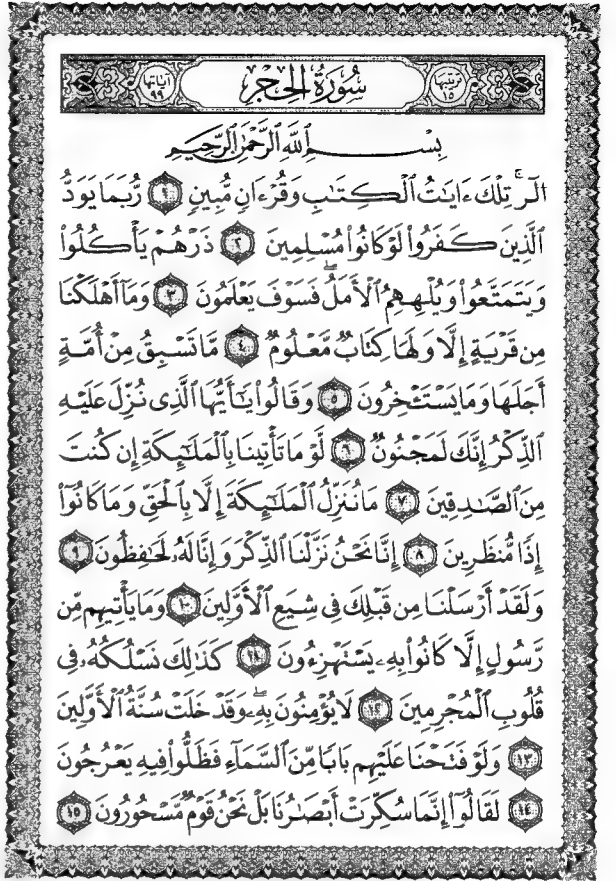 ترتيبها ١٥ سُورَةُ الحِجْرِ آياتها ٩٩
بِسْمِ ٱللَّهِ ٱلرَّحْمَٰنِ ٱلرَّحِيمِ
الٓر ۚ تِلْكَ ءَايَٰتُ ٱلْكِتَٰبِ وَقُرْءَانٍ مُّبِينٍ ١ رُّبَمَا يَوَدُّ
ٱلَّذِينَ كَفَرُوا۟ لَوْ كَانُوا۟ مُسْلِمِينَ ٢ ذَرْهُمْ يَأْكُلُوا۟
وَيَتَمَتَّعُوا۟ وَيُلْهِهِمُ ٱلْأَمَلُ ۖ فَسَوْفَ يَعْلَمُونَ ٣ وَمَآ أَهْلَكْنَا
مِن قَرْيَةٍ إِلَّا وَلَهَا كِتَابٌ مَّعْلُومٌ ٤ مَّا تَسْبِقُ مِنْ أُمَّةٍ
أَجَلَهَا وَمَا يَسْتَـْٔخِرُونَ ٥ وَقَالُوا۟ يَٰٓأَيُّهَا ٱلَّذِى نُزِّلَ عَلَيْهِ
ٱلذِّكْرُ إِنَّكَ لَمَجْنُونٌ ٦ لَّوْ مَا تَأْتِينَا بِٱلْمَلَٰٓئِكَةِ إِن كُنتَ
مِنَ ٱلصَّٰدِقِينَ ٧ مَا نُنَزِّلُ ٱلْمَلَٰٓئِكَةَ إِلَّا بِٱلْحَقِّ وَمَا كَانُوٓا۟
إِذًا مُّنظَرِينَ ٨ إِنَّا نَحْنُ نَزَّلْنَا ٱلذِّكْرَ وَإِنَّا لَهُۥ لَحَٰفِظُونَ ٩
وَلَقَدْ أَرْسَلْنَا مِن قَبْلِكَ فِى شِيَعِ ٱلْأَوَّلِينَ ١٠ وَمَا يَأْتِيهِم مِّن
رَّسُولٍ إِلَّا كَانُوا۟ بِهِۦ يَسْتَهْزِءُونَ ١١ كَذَٰلِكَ نَسْلُكُهُۥ فِى
قُلُوبِ ٱلْمُجْرِمِينَ ١٢ لَا يُؤْمِنُونَ بِهِۦ ۖ وَقَدْ خَلَتْ سُنَّةُ ٱلْأَوَّلِينَ
١٣ وَلَوْ فَتَحْنَا عَلَيْهِم بَابًا مِّنَ ٱلسَّمَآءِ فَظَلُّوا۟ فِيهِ يَعْرُجُونَ
١٤ لَقَالُوٓا۟ إِنَّمَا سُكِّرَتْ أَبْصَٰرُنَا بَلْ نَحْنُ قَوْمٌ مَّسْحُورُونَ ١٥